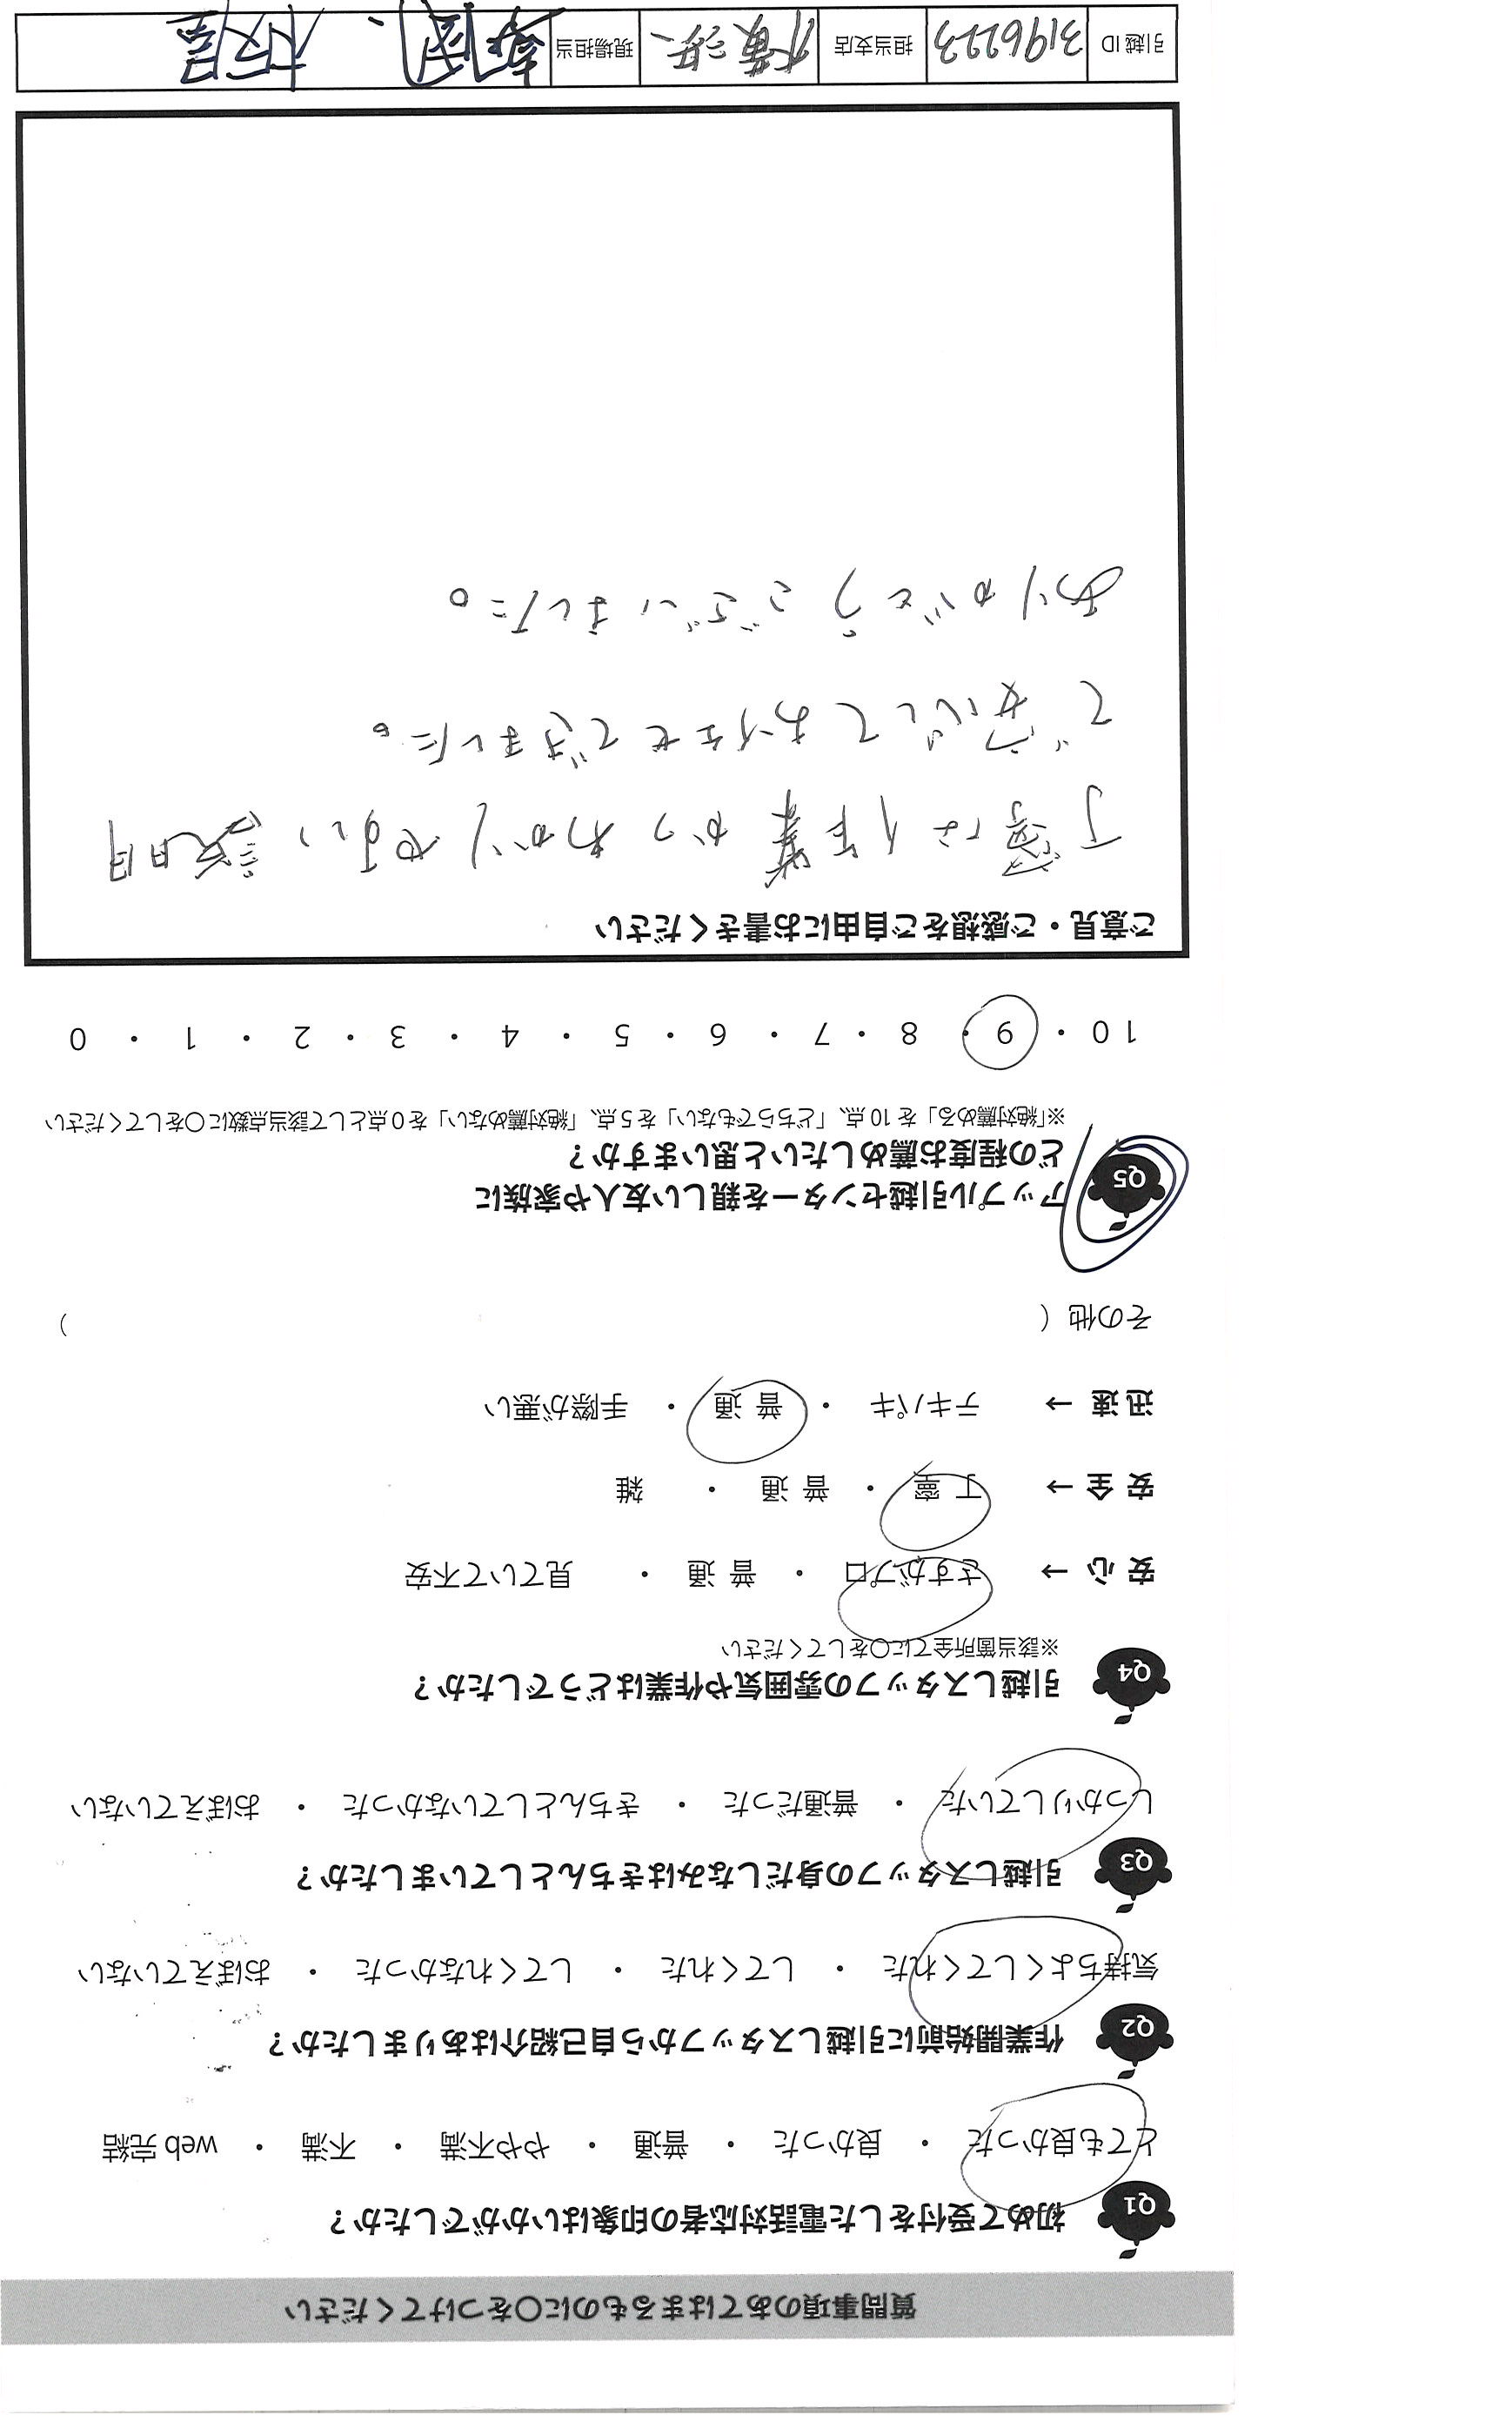 質問事項のあてはまるものに〇をつけてください
Q1 初めて受付をした電話対応者の印象はいかがでしたか？
とても良かった ・ 良かった ・ 普通 ・ やや不満 ・ 不満 ・ web 完結
Q2 作業開始前に引越しスタッフから自己紹介はありましたか？
気持ちよくしてくれた ・ してくれた ・ してくれなかった ・ おぼえていない
Q3 引越しスタッフの身だしなみはきちんとしていましたか？
しっかりしていた ・ 普通だった ・ きちんとしていなかった ・ おぼえていない
Q4 引越しスタッフの雰囲気や作業はどうでしたか？
※該当箇所全てに〇をしてください
安 心 → さすがプロ ・ 普 通 ・ 見ていて不安
安 全 → 丁 寧 ・ 普 通 ・ 雑
迅 速 → テキパキ ・ 普 通 ・ 手際が悪い
その他（ ）
Q5 アップル引越センターを親しい友人や家族に
どの程度お薦めしたいと思いますか？
※「絶対薦める」を 10 点、「どちらでもない」を 5 点、「絶対薦めない」を 0 点として該当点数に〇をしてください
10 ・ 9 ・ 8 ・ 7 ・ 6 ・ 5 ・ 4 ・ 3 ・ 2 ・ 1 ・ 0
ご意見・ご感想をご自由にお書きください
丁寧な作業かつわかりやすい説明
で安心してお任せできました。
ありがとうございました。
引越 ID 3196223 担当支店 横浜 現場担当